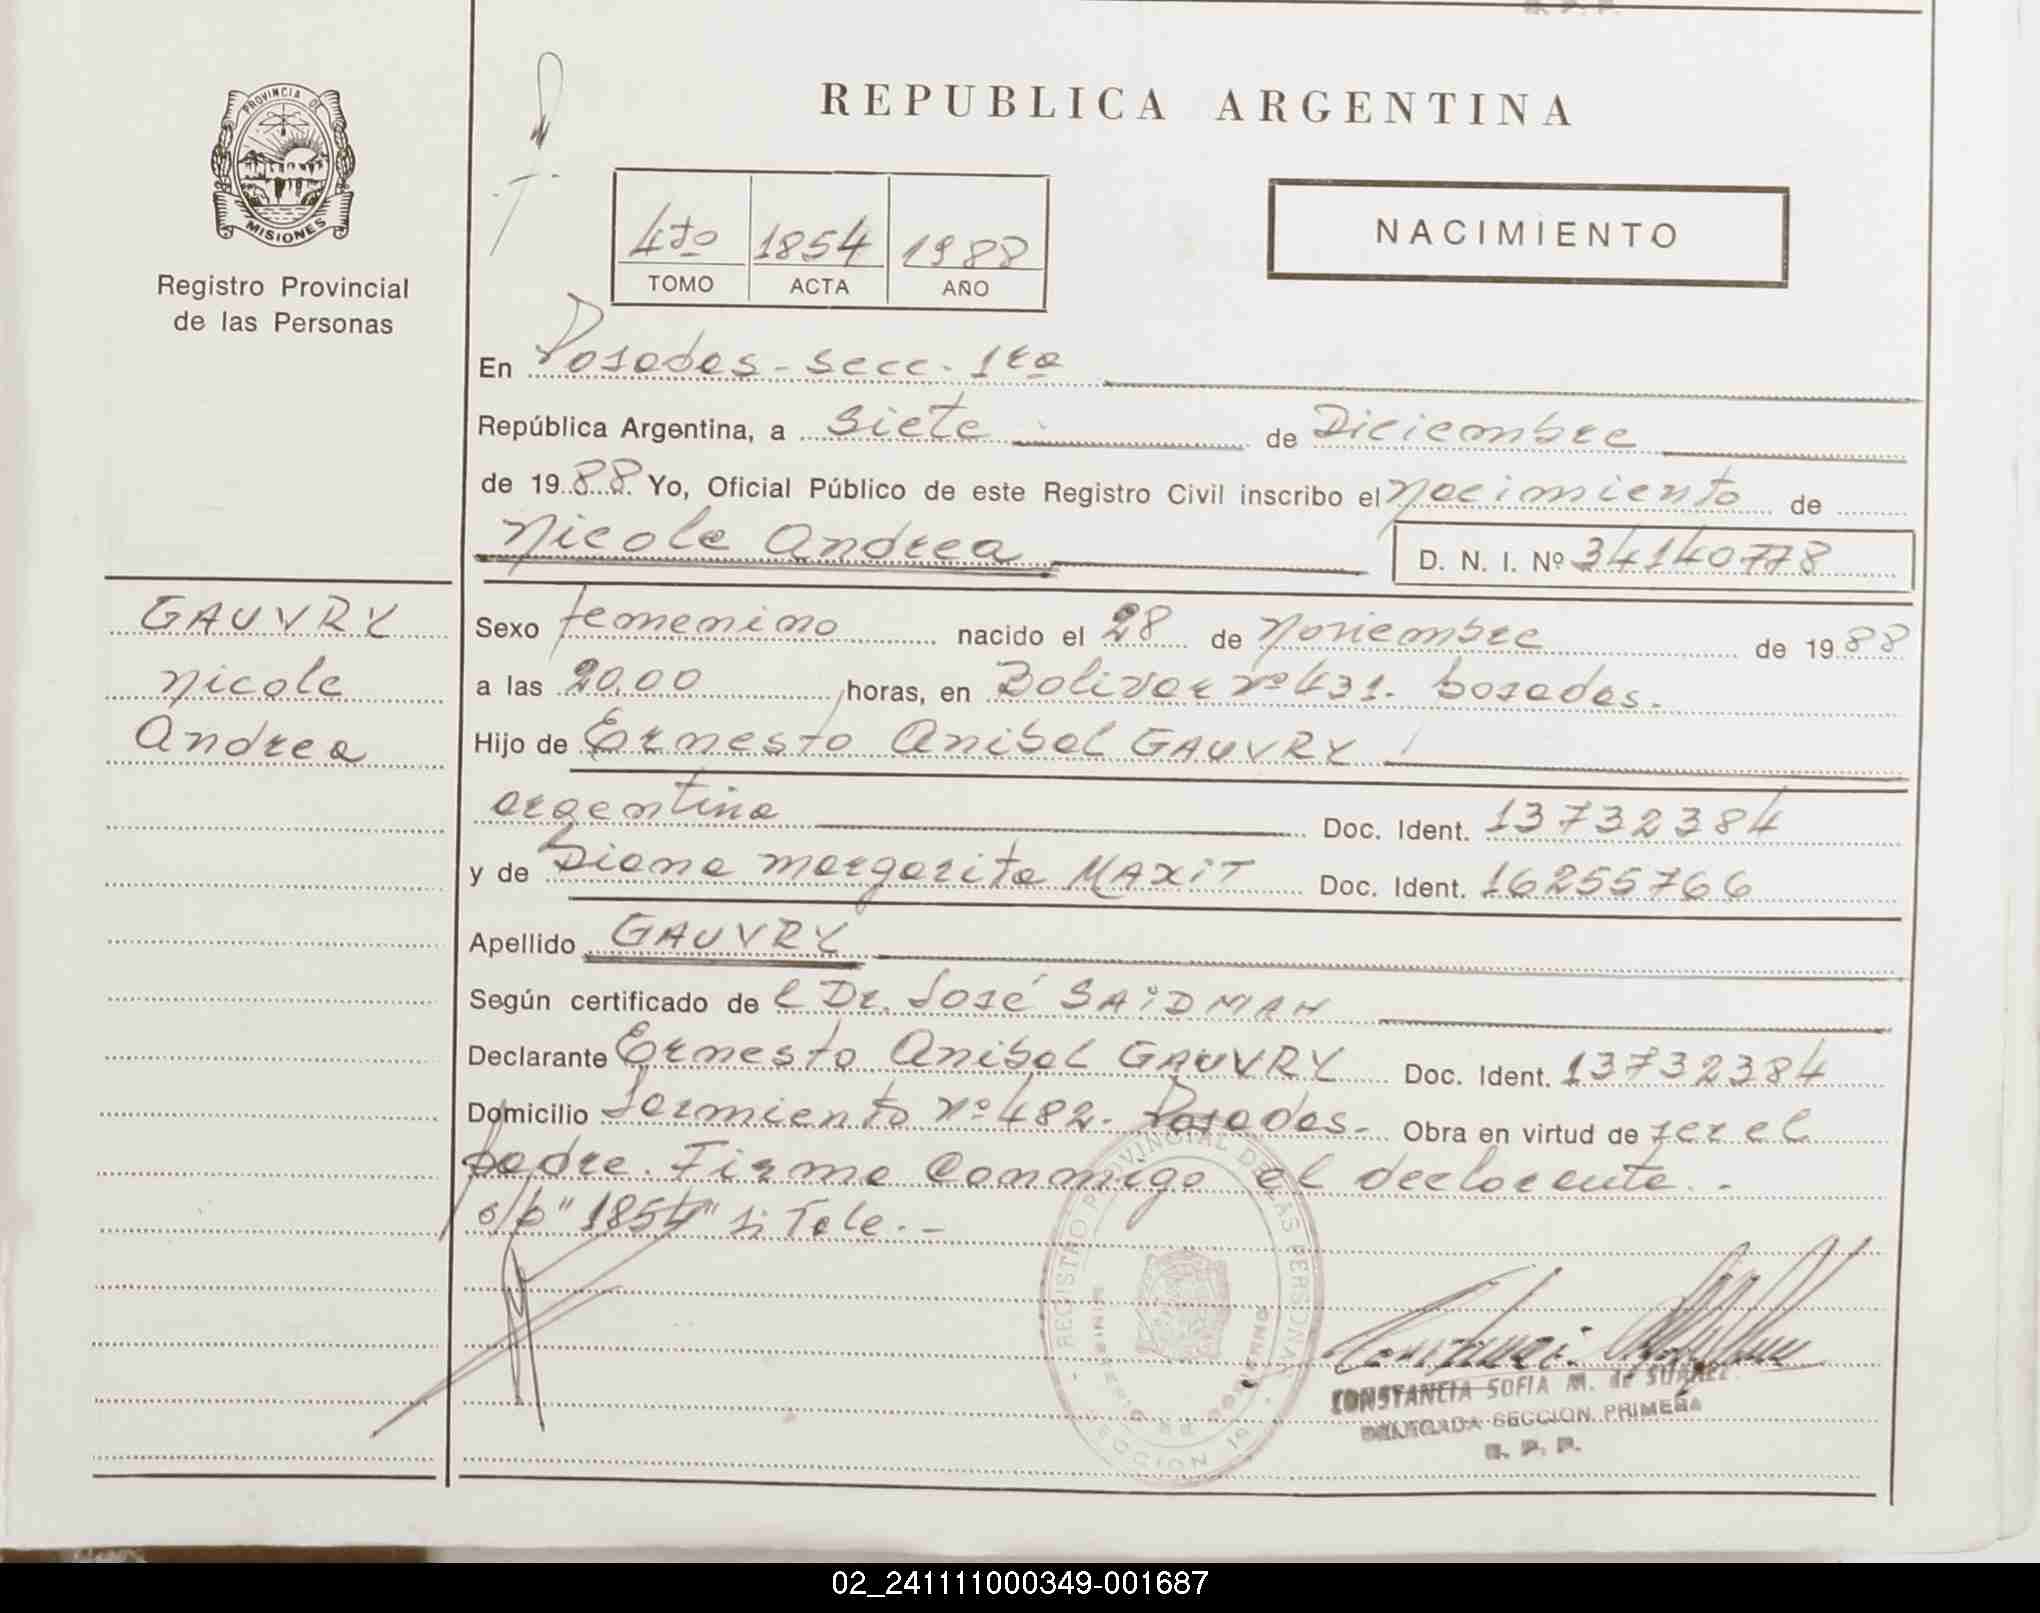 PROVINCIA DE
MISIONES
Registro Provincial
de las Personas
REPUBLICA ARGENTINA
4to 1854 1988
TOMO ACTA AÑO
NACIMIENTO
En Posadas - secc. 1ra
República Argentina, a siete de Diciembre
de 1988 Yo, Oficial Público de este Registro Civil inscribo el Nacimiento de
Nicole Andrea D. N. I. Nº 34140778
GAUVRY
Nicole
Andrea
Sexo femenino nacido el 28 de Noviembre de 1988
a las 20,00 horas, en Bolivar nº 431. Posadas.
Hijo de Ernesto Anibal GAUVRY
argentina Doc. Ident. 13732384
y de Diana Margarita MAXIT Doc. Ident. 16255766
Apellido GAUVRY
Según certificado de l Dr. José SAIDMAN
Declarante Ernesto Anibal GAUVRY Doc. Ident. 13732384
Domicilio Sarmiento nº 482. Posadas. Obra en virtud de ser el
padre. Firma Conmigo el declarante. -
s/b "1854" si Vale. -
REGISTRO PROVINCIAL DE LAS PERSONAS
MINISTERIO DE GOBIERNO
SECCION 1a
CONSTANCIA SOFIA M. de SUAREZ
DELEGADA SECCION PRIMERA
R. P. P.
02_241111000349-001687